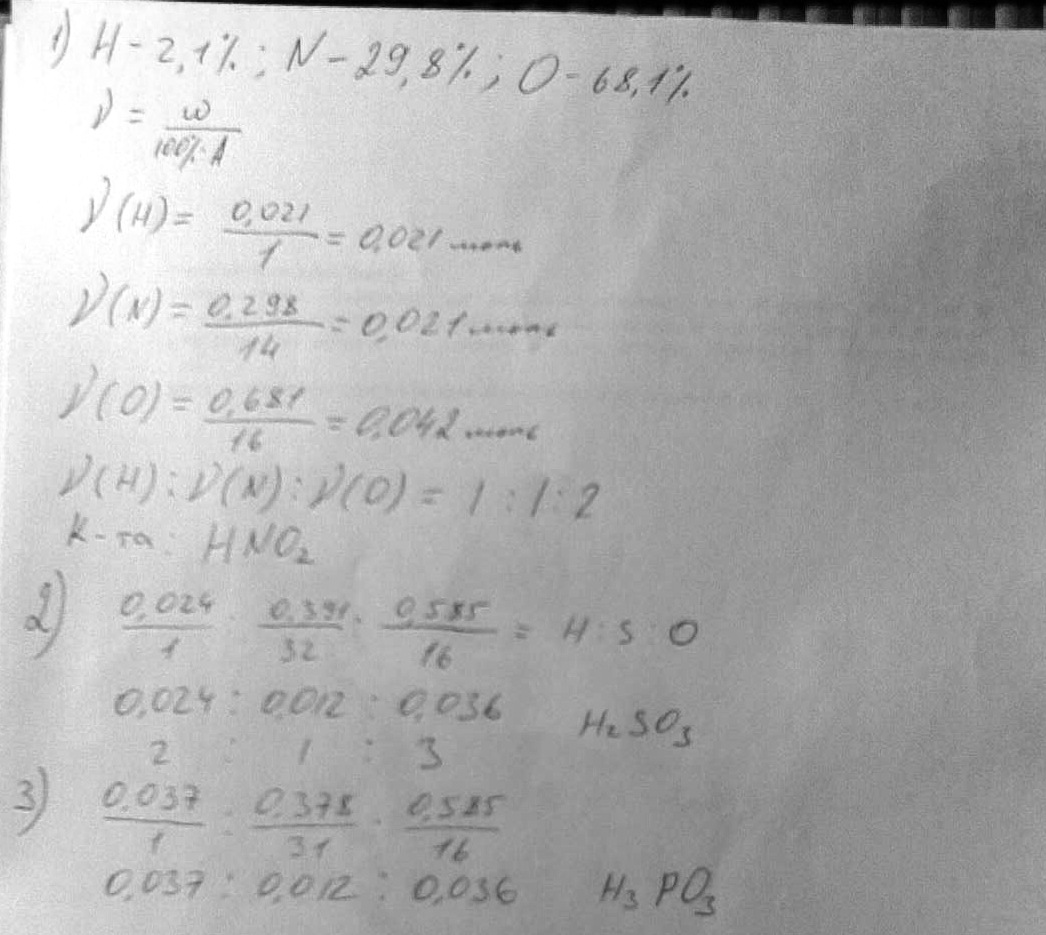 1) H - 2,1%; N - 29,8%; O - 68,1%
ν = ω / 100%·A
ν(H) = 0,021 / 1 = 0,021 моль
ν(N) = 0,298 / 14 = 0,021 моль
ν(O) = 0,681 / 16 = 0,042 моль
ν(H) : ν(N) : ν(O) = 1 : 1 : 2
К-та: HNO₂
2) 0,024 / 1 : 0,391 / 32 : 0,585 / 16 = H : S : O
0,024 : 0,012 : 0,036 H₂SO₃
2 : 1 : 3
3) 0,037 / 1 : 0,378 / 31 : 0,585 / 16
0,037 : 0,012 : 0,036 H₃PO₃